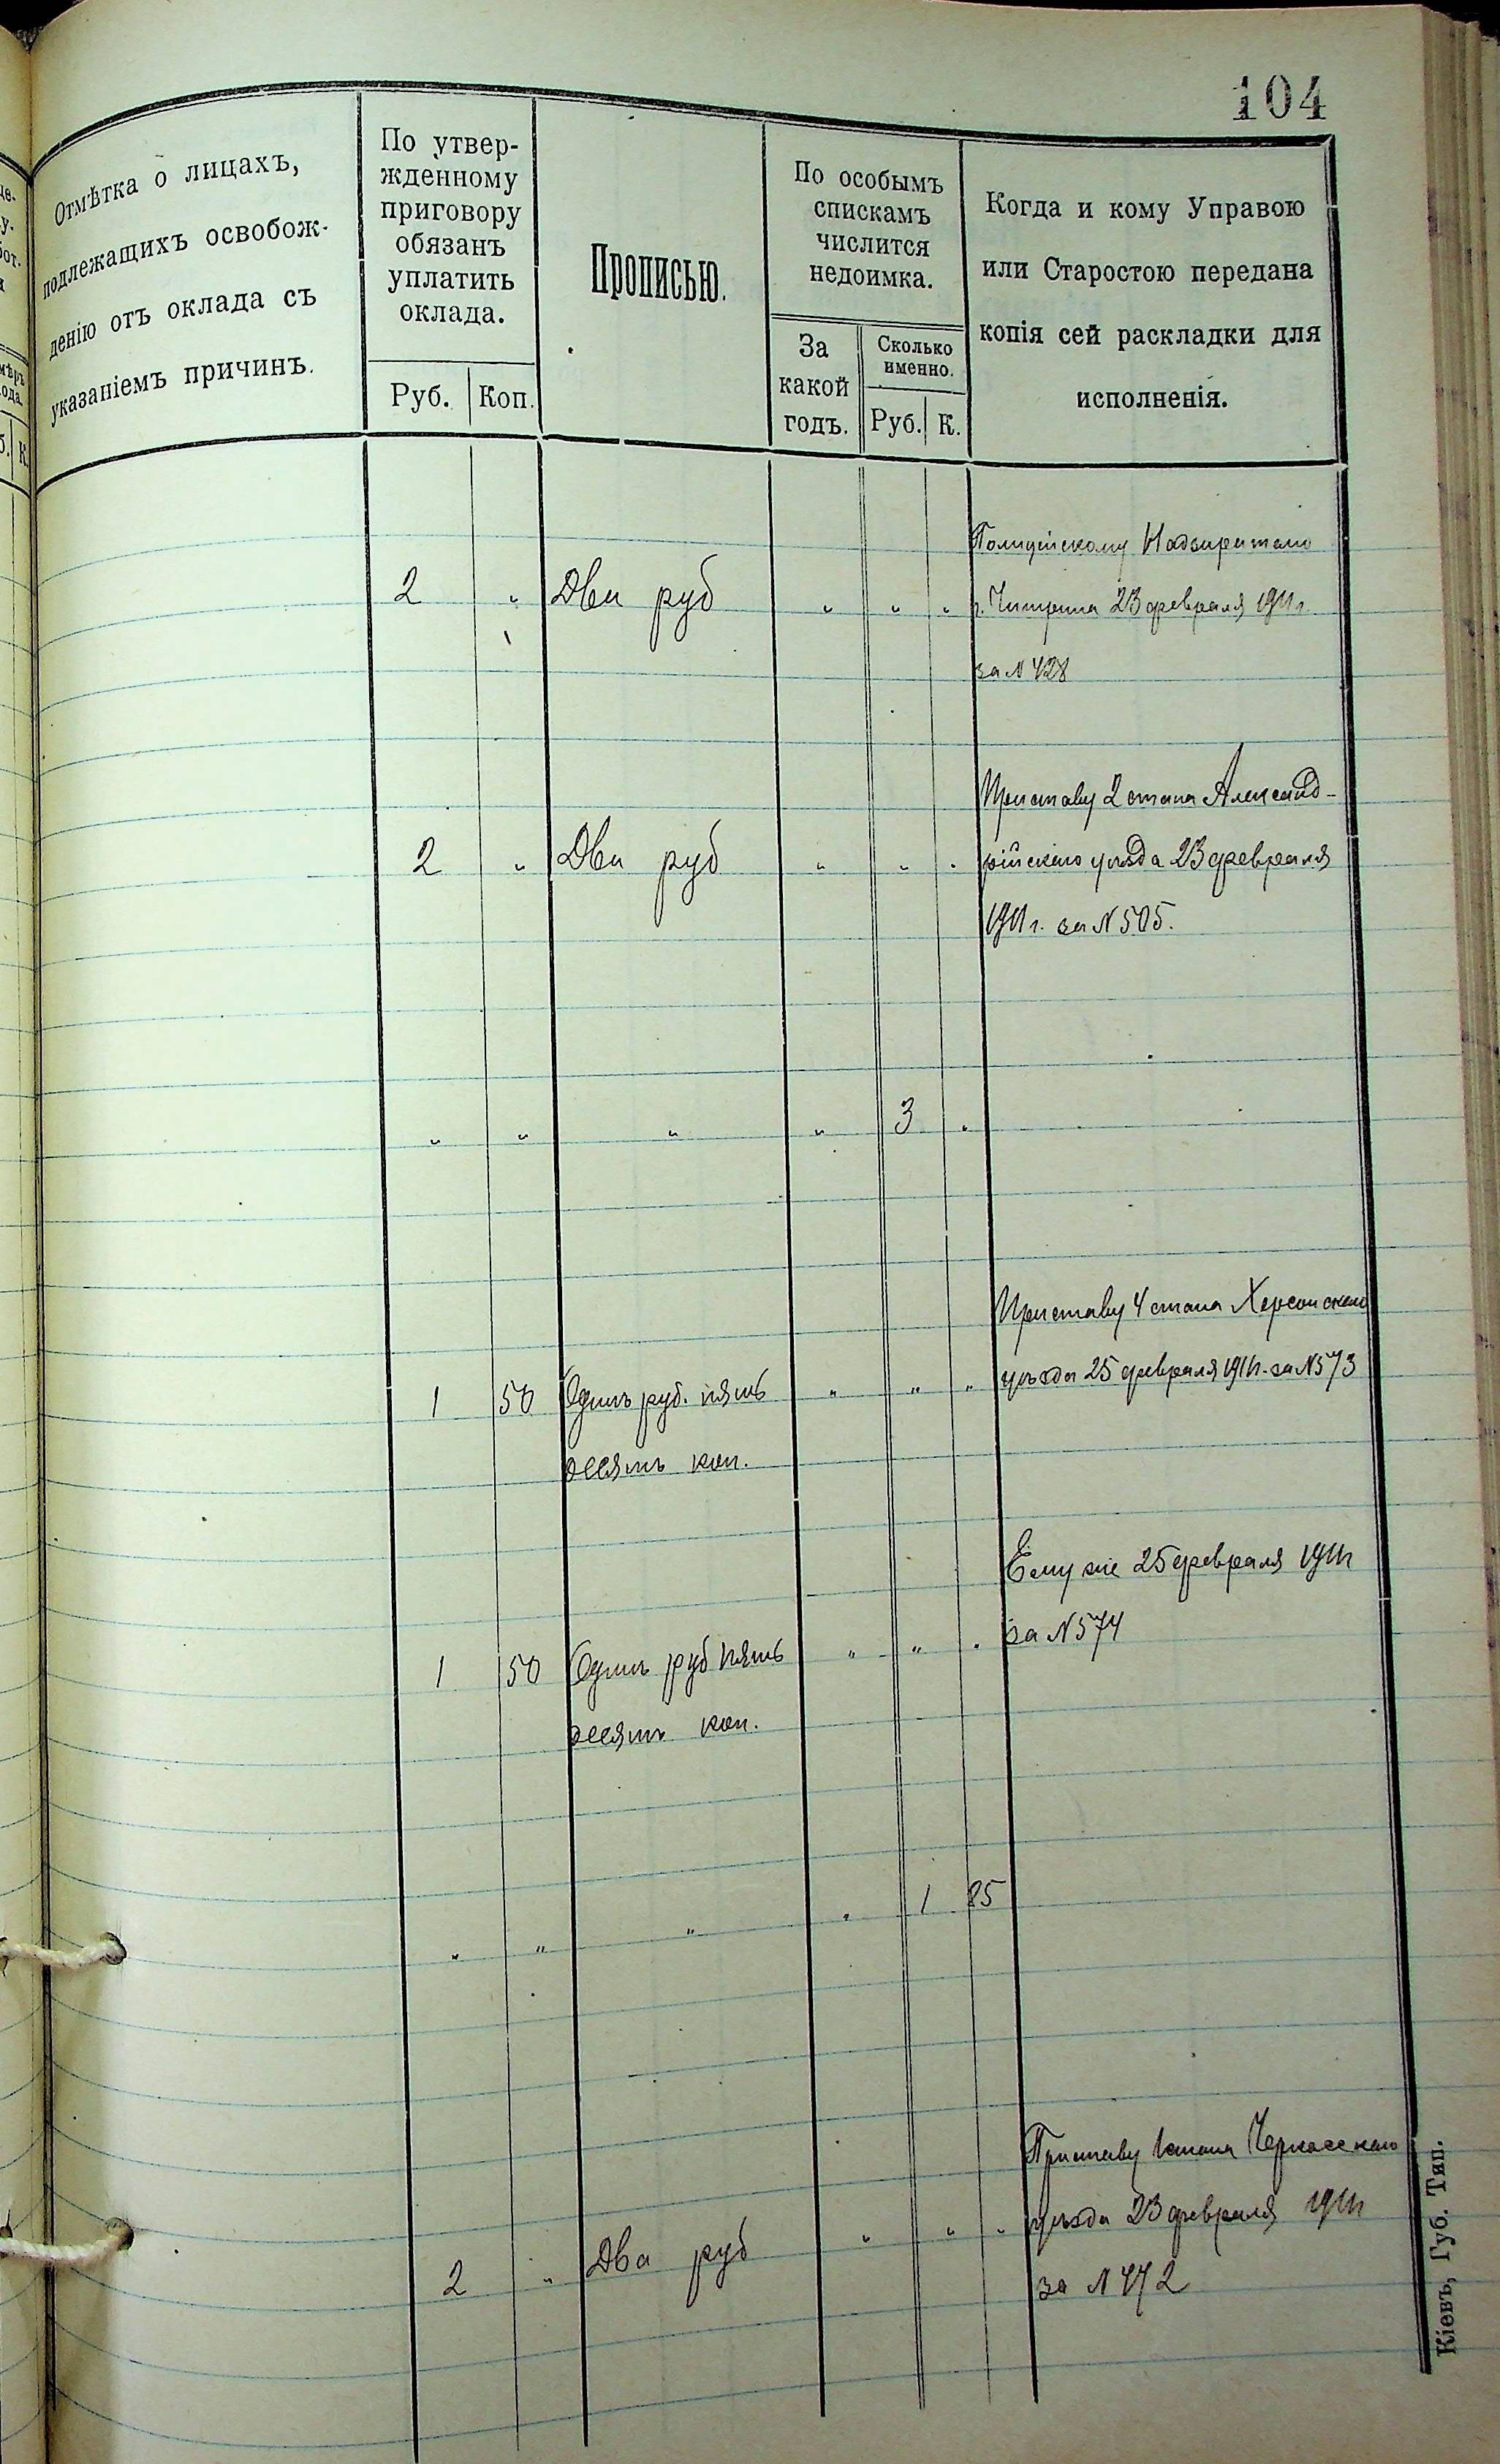 104
Отмѣтка о лицахъ,
подлежащихъ освобож-
денію отъ оклада съ
указаніемъ причинъ.
По утвер-
жденному
приговору
обязанъ
уплатить
оклада.
Руб. Коп.
Прописью.
По особымъ
спискамъ
числится
недоимка.
За
какой
годъ.
Сколько
именно.
Руб. К.
Когда и кому Управою
или Старостою передана
копія сей раскладки для
исполненія.
Полицейскому Надзирателю
2 " Два руб " " " г. Чигирина 23 февраля 1911 г.
за N 428
Приставу 2 стана Александ-
2 " Два руб " " " рійскаго уѣзда 23 февраля
1911 г. за N 505.
" " " " 3 "
Приставу 4 стана Херсонскаго
1 50 Одинъ руб. пять " " " уѣзда 25 февраля 1911 г. за N 573
десятъ коп.
Ему же 25 февраля 1911 г
1 50 Одинъ руб пять " " " за N 574
десятъ коп.
" " " " 1 85
Приставу 1 стана Черкасскаго
2 " Два руб " " " уѣзда 23 февраля 1911 г
за N 442
Кіевъ, Губ. Тип.